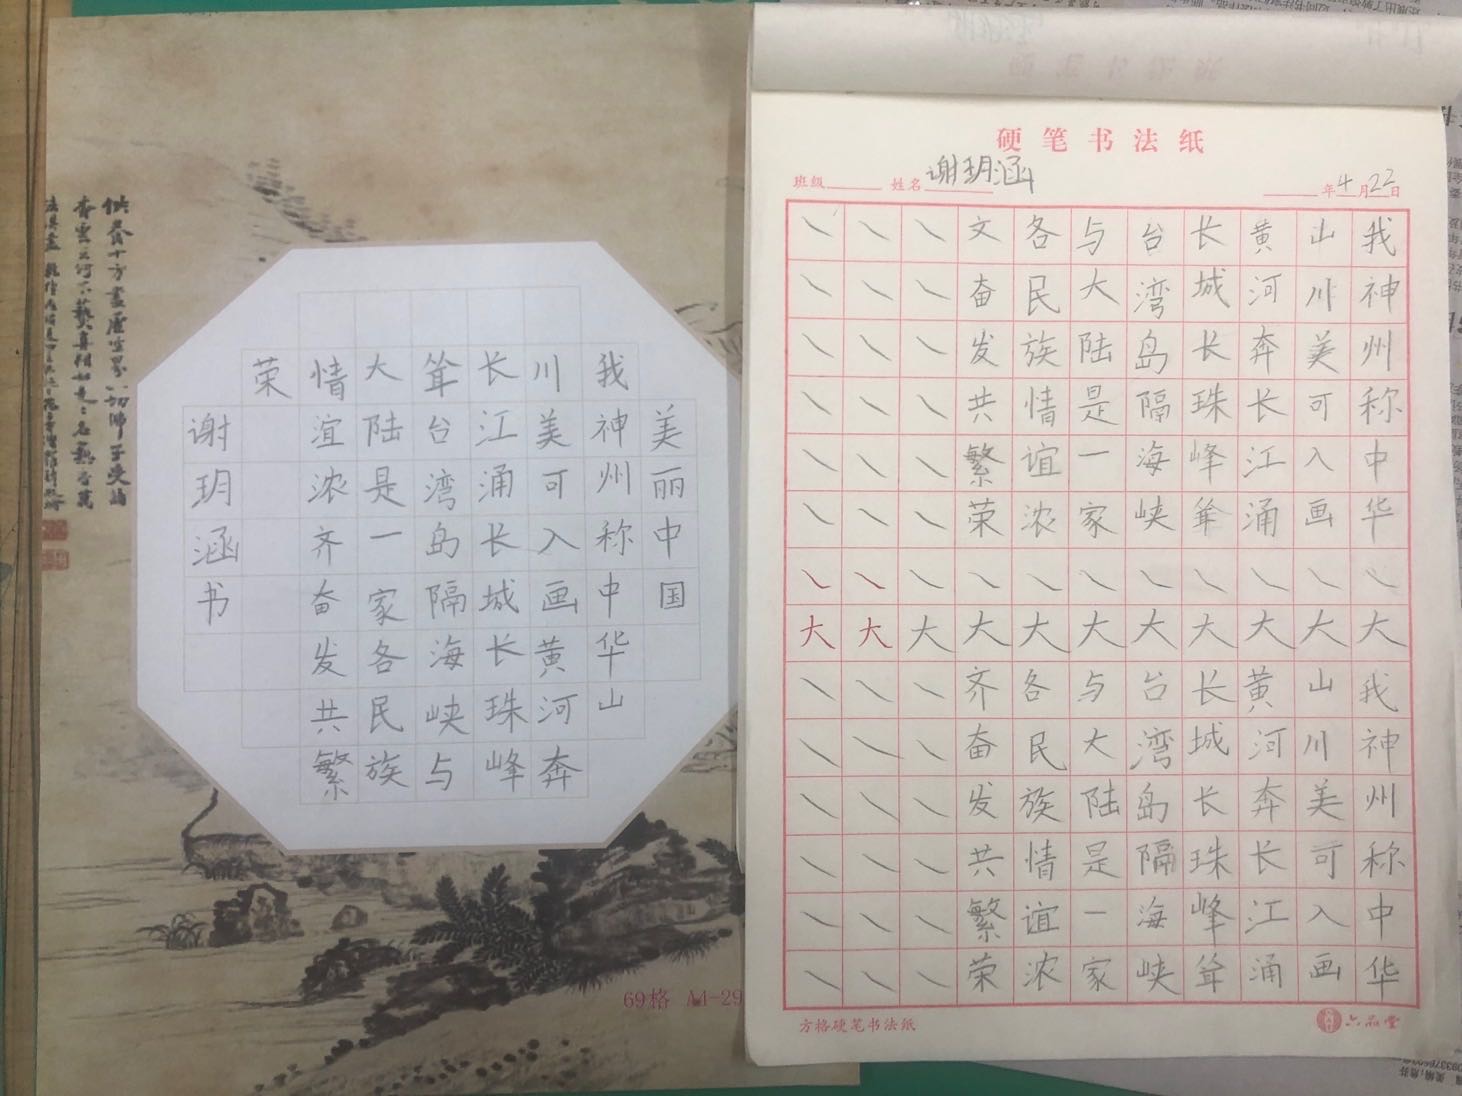 美丽中国
我神州称中华山
川美可入画黄河奔
长江涌长城长珠峰
耸台湾岛隔海峡与
大陆是一家各民族
情谊浓齐奋发共繁
荣
谢玥涵书
69格 A4-29
硬笔书法纸
班级 姓名 谢玥涵 年4月22日
我神州称中华大我神州称中华
山川美可入画大山川美可入画
黄河奔长江涌大黄河奔长江涌
长城长珠峰耸大长城长珠峰耸
台湾岛隔海峡大台湾岛隔海峡
与大陆是一家大与大陆是一家
各民族情谊浓大各民族情谊浓
文奋发共繁荣大齐奋发共繁荣
大
大
大
方格硬笔书法纸
六品堂